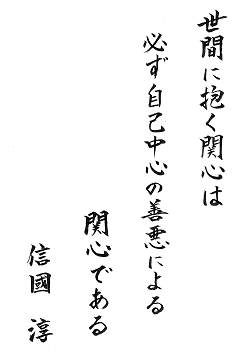 世間に抱く関心は
必ず自己中心の善悪による
関心である
信國 淳